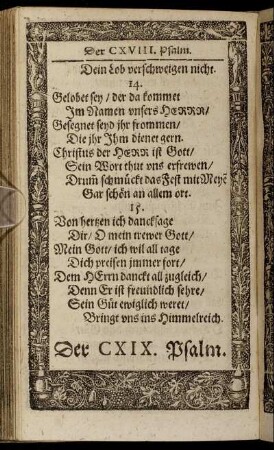 Der CXVIII. Psalm.
Dein Lob verschweigen nicht.
14.
Gelobet sey / der da kommet
Im Namen vnsers HERRN /
Gesegnet seyd jhr frommen /
Die jhr Ihm diener gern.
Christus der HERR ist Gott /
Sein Wort thut vns erfrewen /
Drum̃ schmückt das Fest mit Meyẽ
Gar schön an allem ort.
15.
Von hertzen ich dancksage
Dir / O mein trewer Gott /
Mein Gott / ich wil all tage
Dich preisen jmmer fort /
Dem HErrn danckt all zugleich /
Denn Er ist freundlich sehre /
Sein Güt ewiglich weret /
Bringt vns ins Himmelreich.
Der CXIX. Psalm.